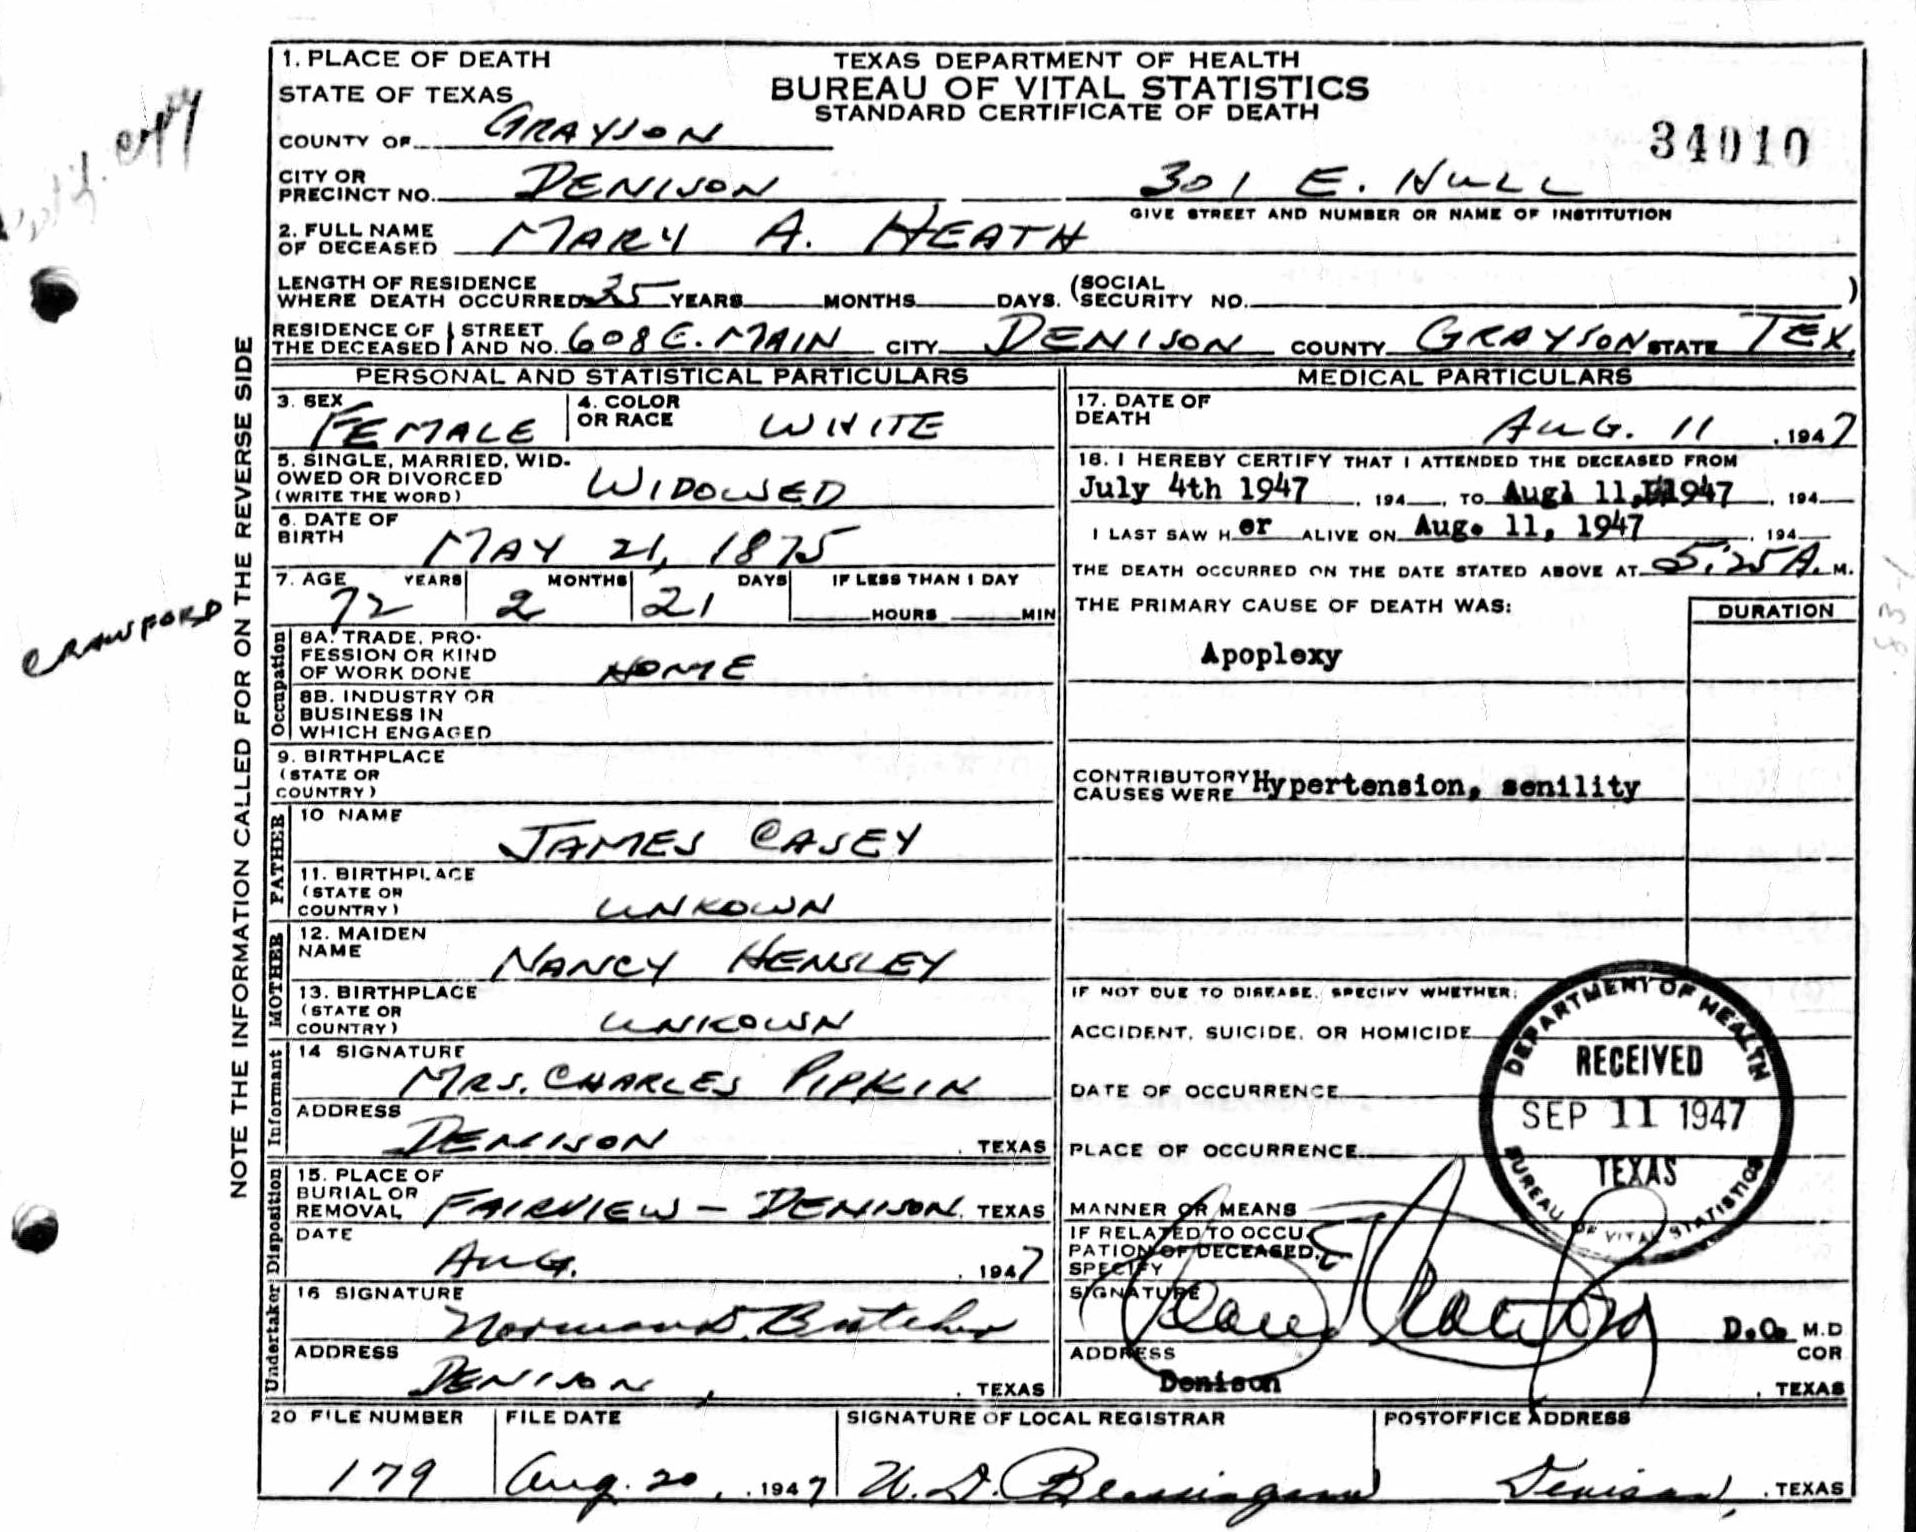 1. PLACE OF DEATH
TEXAS DEPARTMENT OF HEALTH
STATE OF TEXAS
BUREAU OF VITAL STATISTICS
STANDARD CERTIFICATE OF DEATH
COUNTY OF GRAYSON
34010
CITY OR PRECINCT NO. DENISON 301 E. HULL
GIVE STREET AND NUMBER OR NAME OF INSTITUTION
2. FULL NAME OF DECEASED MARY A. HEATH
LENGTH OF RESIDENCE WHERE DEATH OCCURRED 35 YEARS MONTHS DAYS. (SOCIAL SECURITY NO. )
RESIDENCE OF THE DECEASED STREET AND NO. 608 E. MAIN CITY DENISON COUNTY GRAYSON STATE TEX.
PERSONAL AND STATISTICAL PARTICULARS
3. SEX FEMALE 4. COLOR OR RACE WHITE
5. SINGLE, MARRIED, WID-
OWED OR DIVORCED WIDOWED
(WRITE THE WORD)
6. DATE OF BIRTH MAY 21, 1875
7. AGE YEARS MONTHS DAYS IF LESS THAN 1 DAY
72 2 21 HOURS MIN
Occupation
8A. TRADE, PRO-
FESSION OR KIND
OF WORK DONE HOME
8B. INDUSTRY OR
BUSINESS IN
WHICH ENGAGED
9. BIRTHPLACE
(STATE OR
COUNTRY)
FATHER
10 NAME JAMES CASEY
11. BIRTHPLACE
(STATE OR
COUNTRY) UNKOWN
MOTHER
12. MAIDEN
NAME NANCY HENSLEY
13. BIRTHPLACE
(STATE OR
COUNTRY) UNKOWN
Informant
14 SIGNATURE MRS. CHARLES PIPKIN
ADDRESS DENISON, TEXAS
Disposition
15. PLACE OF
BURIAL OR
REMOVAL FAIRVIEW - DENISON, TEXAS
DATE AUG. , 1947
Undertaker
16 SIGNATURE Norman D. Butcher
ADDRESS DENISON, , TEXAS
MEDICAL PARTICULARS
17. DATE OF DEATH AUG. 11 , 1947
18. I HEREBY CERTIFY THAT I ATTENDED THE DECEASED FROM
July 4th 1947 , 194 , TO Augl 11, 1947 , 194
I LAST SAW H er ALIVE ON Aug. 11, 1947 , 194
THE DEATH OCCURRED ON THE DATE STATED ABOVE AT 5:25 A. M.
THE PRIMARY CAUSE OF DEATH WAS: DURATION
Apoplexy
CONTRIBUTORY CAUSES WERE Hypertension, senility
IF NOT DUE TO DISEASE, SPECIFY WHETHER:
ACCIDENT, SUICIDE, OR HOMICIDE
DATE OF OCCURRENCE
PLACE OF OCCURRENCE
MANNER OR MEANS
IF RELATED TO OCCU-
PATION OF DECEASED,
SPECIFY
SIGNATURE D.O. M.D
COR
ADDRESS Denison , TEXAS
DEPARTMENT OF HEALTH
RECEIVED
SEP 11 1947
TEXAS
BUREAU OF VITAL STATISTICS
20 FILE NUMBER FILE DATE SIGNATURE OF LOCAL REGISTRAR POSTOFFICE ADDRESS
179 Aug. 20, , 1947 Denison, , TEXAS
NOTE THE INFORMATION CALLED FOR ON THE REVERSE SIDE
CRAWFORD